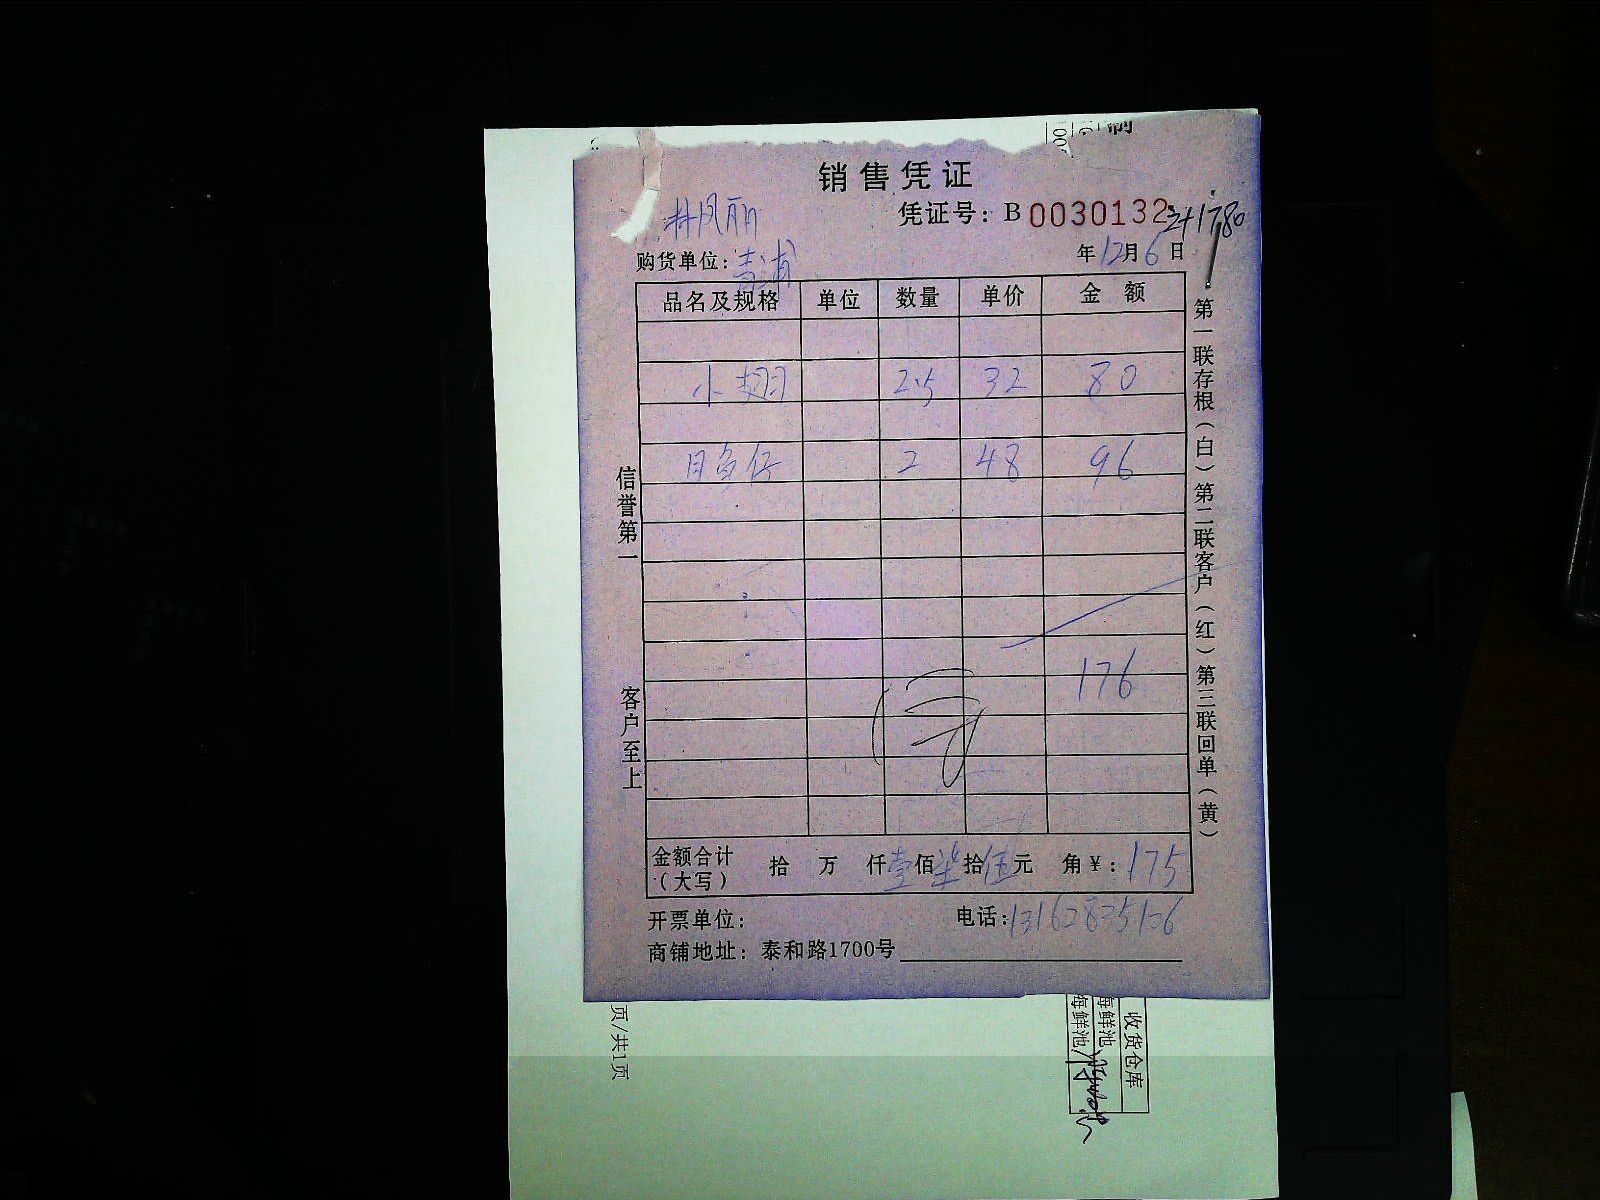 制
销售凭证
林凤丽
凭证号：B 0030132
购货单位：青浦
年12月6日
品名及规格 单位 数量 单价 金额
小翅 2.5 32 80
目鱼仔 2 48 96
176
金额合计（大写） 拾 万 仟壹佰柒拾伍元 角￥：175
开票单位：
电话：13162835106
商铺地址：泰和路1700号
信誉第一 客户至上
第一联存根（白）第二联客户（红）第三联回单（黄）
页/共1页
收货仓库
海鲜池
海鲜池